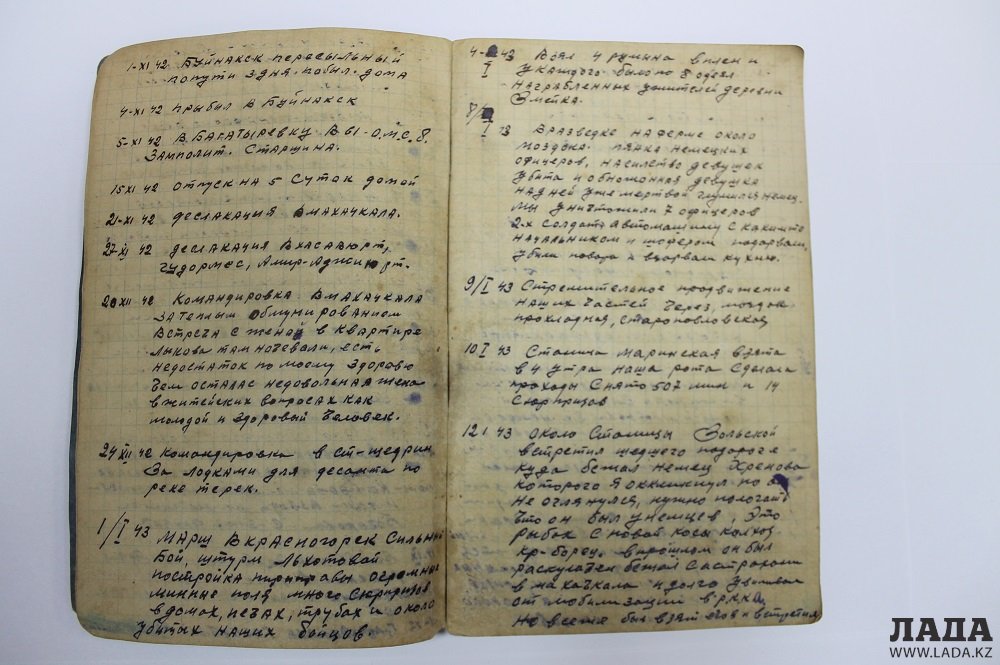 1-XI 42 Буйнакск пересыльный
попути 3 дня побыл дома
4-XI 42 Прыбил в Буйнакск
5-XI 42 В Багатыревку В 61-О.М.С.Б.
Замполит. Старшина.
15 XI 42 отпуск на 5 суток домой
21-XI 42 деслакация в Махачкала.
27-XI 42 деслакация в Хасавюрт,
гудормес, Амир-Аджи юрт.
20 XII 42 Командировка в Махачкала
за теплым обмунированием
Встреча с женой в квартире
Лыкова там ночевали, есть
недостаток по моему здоровю
чем осталас недовольная жена
в житейских вопросах как
молодой и здоровый человек.
24 XII 42 Командировка в ст-щедрин
За лодками для десанта по
реке терек.
1/I 43 Марш в Красногорск Сильный
бой, штурм Льхотовой
постройка периправы огромные
минные поля, много сюрпризов
в домах, печах, трубах и около
убитых наших бойцов.
4-I 43 Взял 4 румына в плен и
у каждого было по 8 одеял
награбленных у жителей деревни
Змейка.
8/I 43 В разведке на ферме около
моздока. пянка немецких
офицеров, насилство девушек
убита и обножонная девушка
над ней уже мертвой глумился немец.
Мы уничтожили 7 офицеров
2-х солдат автомашину с каким то
начальником и шофером подорвали,
убили повара и взорвали кухню.
9/I 43 Стремительное продвижение
наших частей через, моздок
прохладная, староповловская
10 I 43 Станица Маринская взята
в 4 утра наша рота сделала
проходы Снято 507 мин и 14
сюрпризов
12 I 43 около Станицы Зольской
встретил шедшего по дороге
куда бежал немец Хренова
которого я окликнул но он
не оглянулся, нужно пологать
что он был у немцев, Это
рыбак с новой косы колхоз
кр-борец. в прошлом он был
раскулачен бежал с астрахани
в махачкала и долго увиливал
от мобилизации в РККА,
но всеже был взят и встретил
ЛАДА
WWW.LADA.KZ